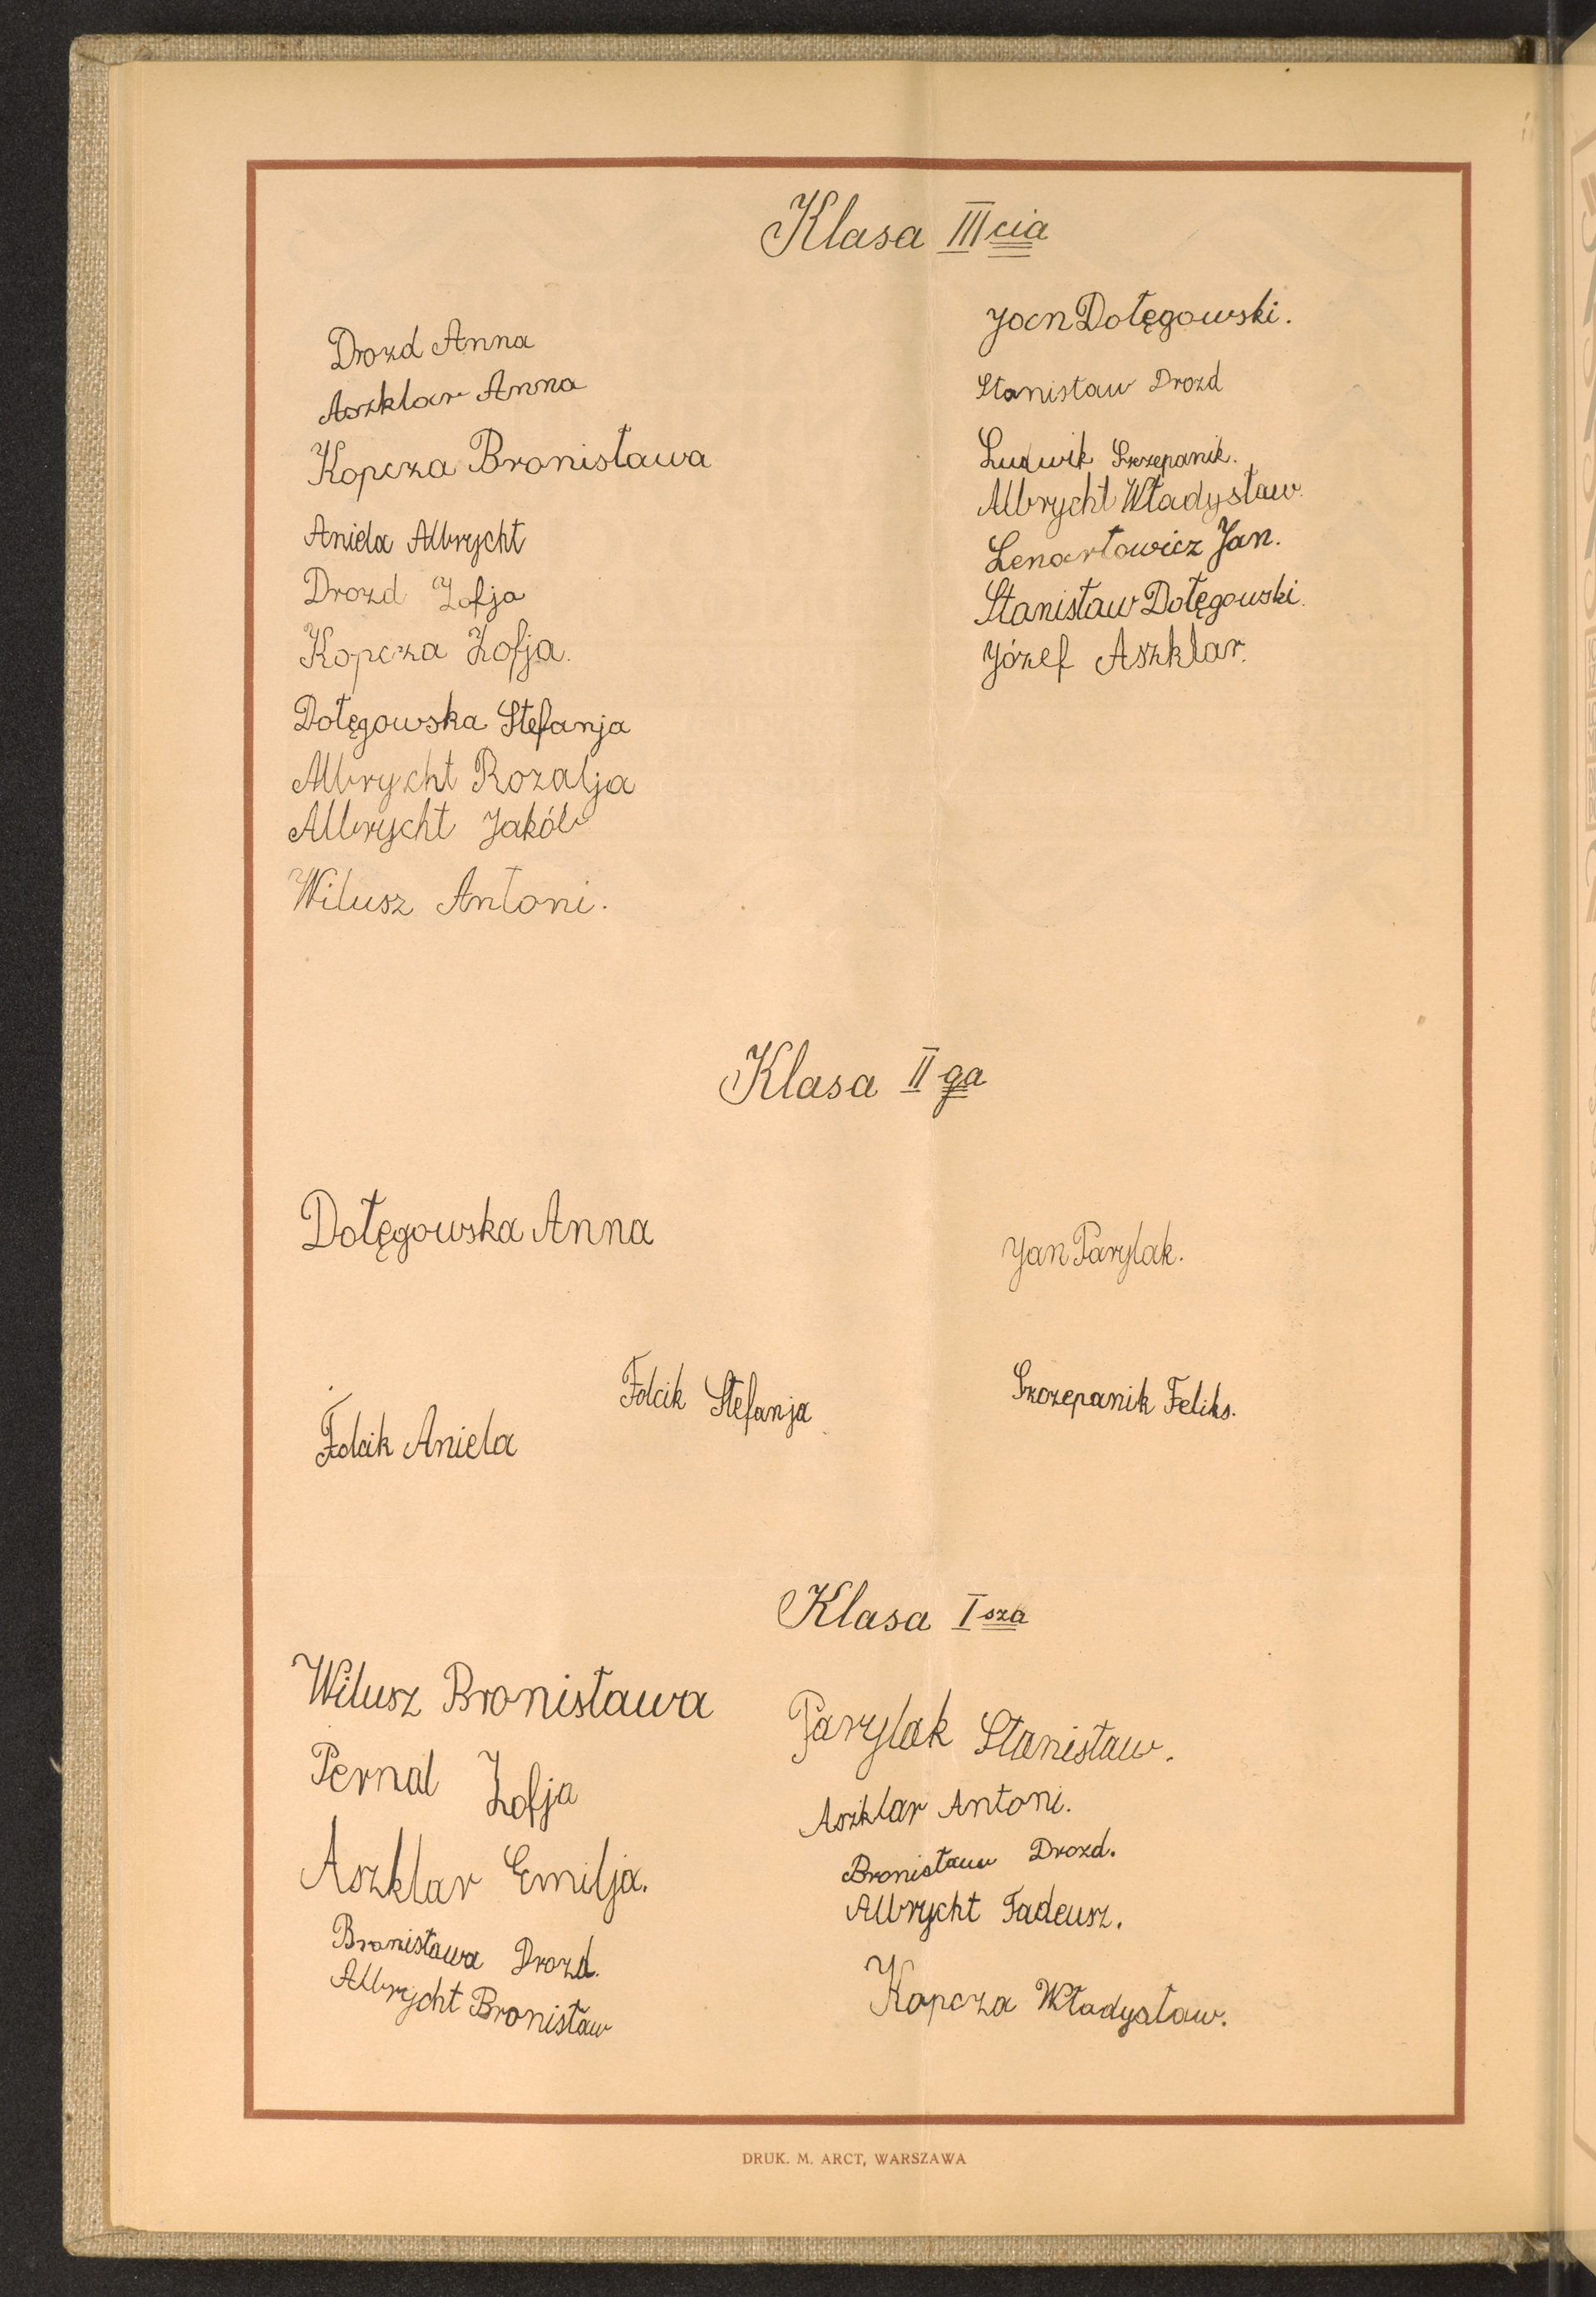 Klasa III cia
Drozd Anna
Aszklar Anna
Kopcza Bronisława
Aniela Albrycht
Drozd Zofja
Kopcza Zofja.
Dołęgowska Stefanja
Albrycht Rozalja
Albrycht Jakób
Wilusz Antoni.
Jan Dołęgowski.
Stanisław Drozd
Ludwik Szczepanik.
Albrycht Władysław.
Lenartowicz Jan.
Stanisław Dołęgowski.
Józef Aszklar.
Klasa II ga
Dołęgowska Anna
Jan Parylak.
Folcik Stefanja
Szczepanik Feliks.
Folcik Aniela
Klasa I sza
Wilusz Bronisława
Pernal Zofja
Aszklar Emilja.
Bronisława Drozd.
Albrycht Bronisław
Parylak Stanisław.
Aszklar Antoni.
Bronisław Drozd.
Albrycht Tadeusz.
Kopcza Władysław.
DRUK. M. ARCT, WARSZAWA